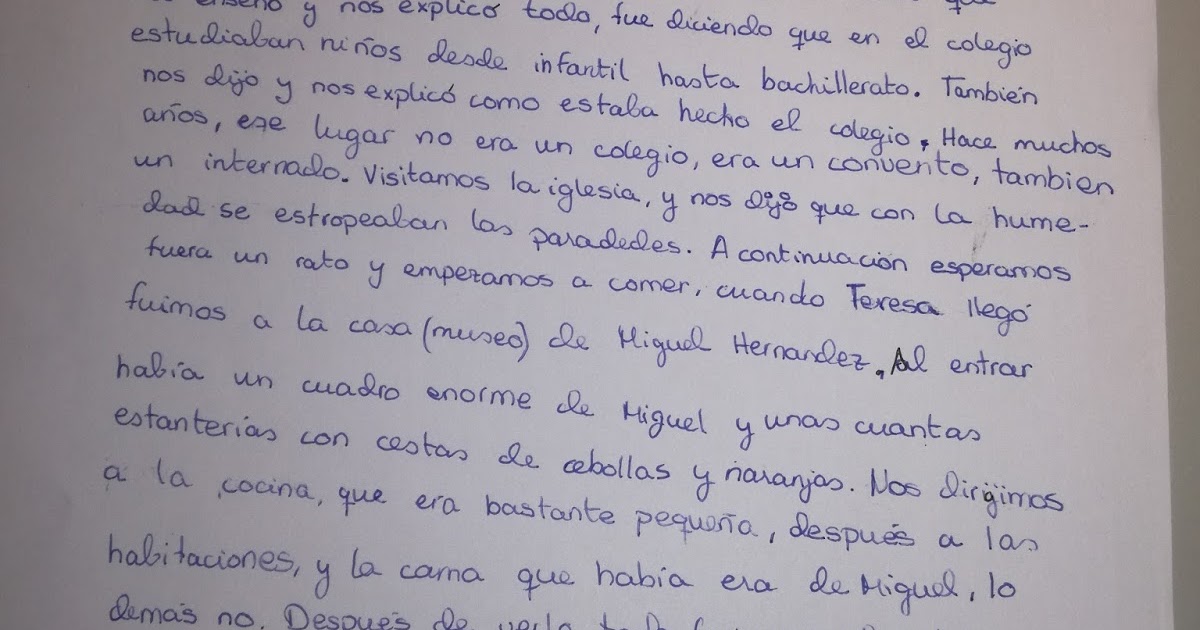 enseñó y nos explicó todo, fue diciendo que en el colegio
estudiaban niños desde infantil hasta bachillerato. También
nos dijo y nos explicó como estaba hecho el colegio, Hace muchos
años, ese lugar no era un colegio, era un convento, tambien
un internado. Visitamos la iglesia, y nos dijo que con la hume-
dad se estropeaban las paradedes. A continuación esperamos
fuera un rato y empezamos a comer, cuando Teresa llegó
fuimos a la casa (museo) de Miguel Hernandez. Al entrar
había un cuadro enorme de Miguel y unas cuantas
estanterías con cestas de cebollas y naranjas. Nos dirijimos
a la cocina, que era bastante pequeña, después a las
habitaciones, y la cama que había era de Miguel, lo
demás no. Después de verla